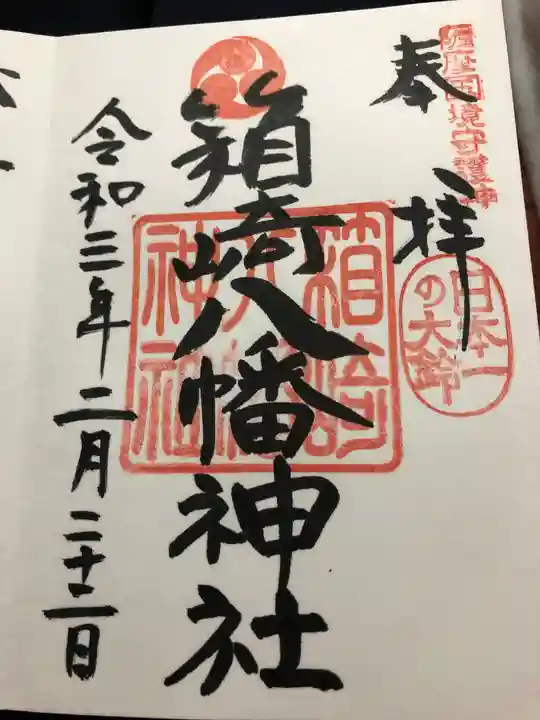 薩摩国境守護神
奉拝
日本一
の大鈴
箱崎八幡神社
箱崎
八幡
神社
令和三年二月二十二日